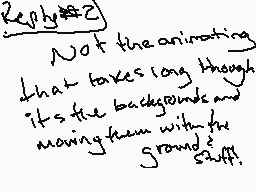 Reply #2
Not the animating
that takes long though
it's the backgrounds and
moving them with the
ground & stuff!